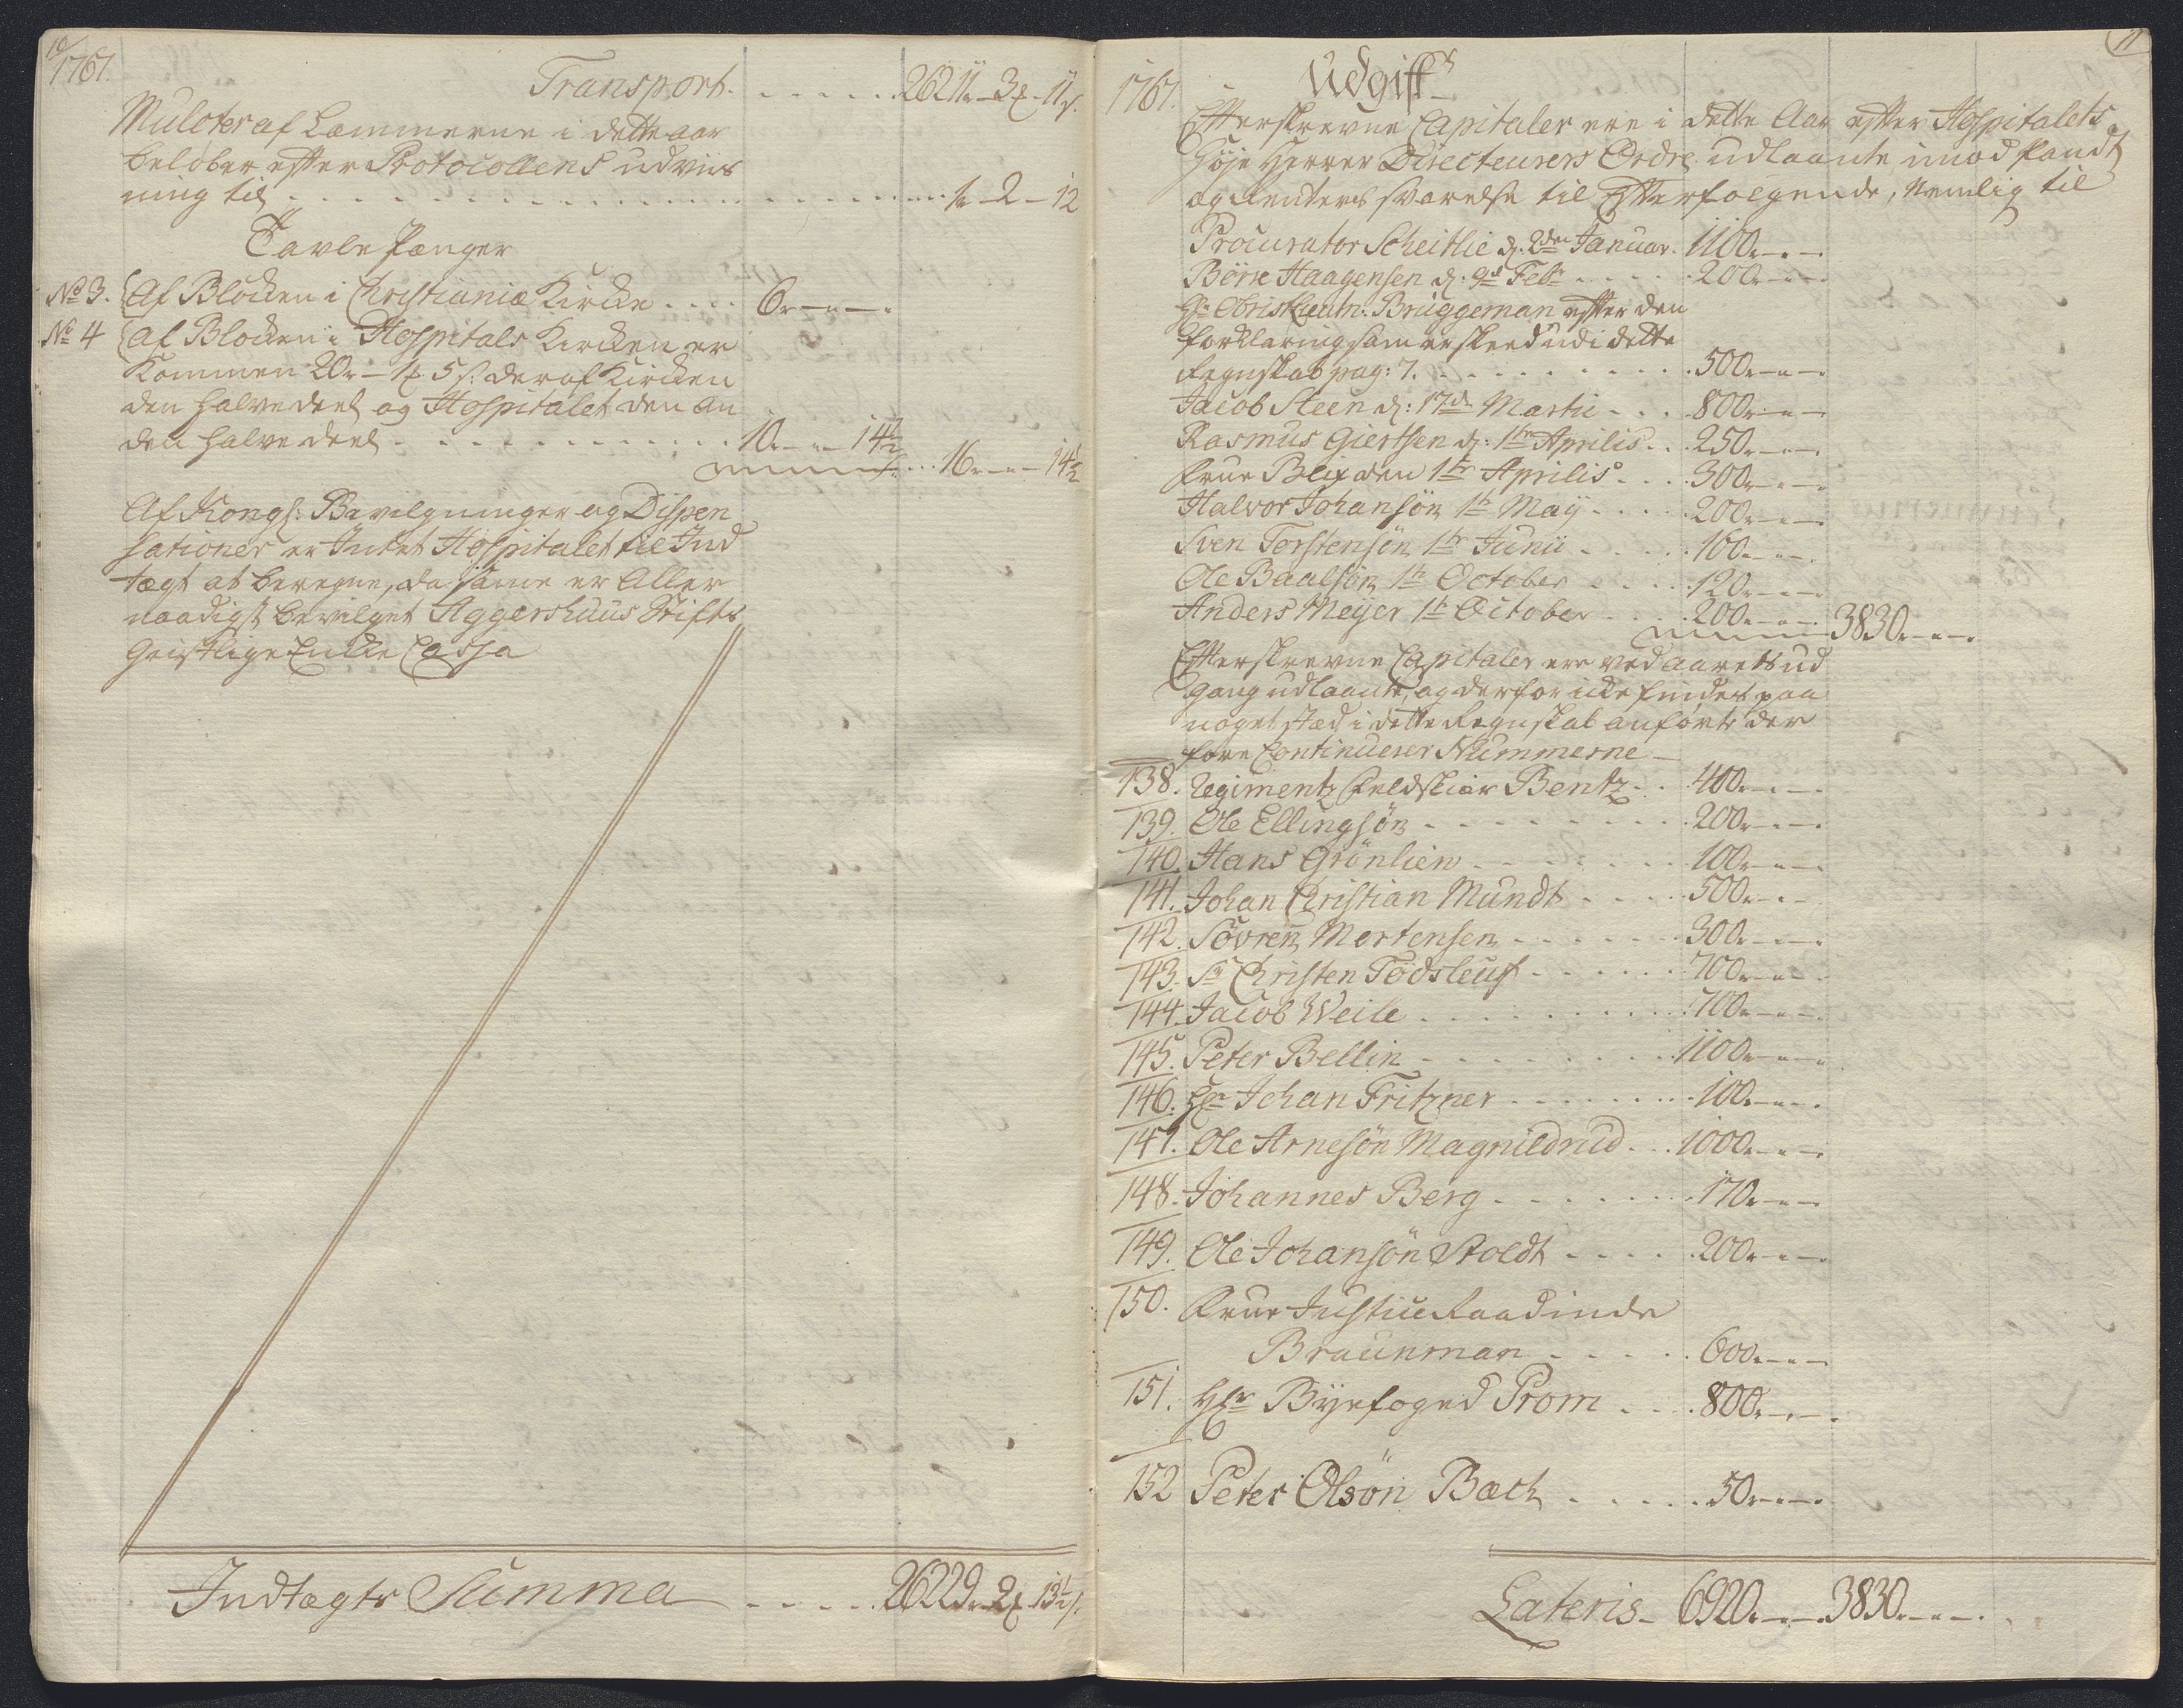 10
1767.
Transport. . . . . . 26211r - 3ƒ - 11s.
Mulcter af Lemmerne i dette aar
beløber efter Protocollens udviis
ning til . . . . . . . . . 1r - 2 - 12
Tavle Penger
No 3. Af Blocken i Christianiæ Kircke . . . . 6r - " - "
No 4 af Blocken i Hospitals Kircken er
kommen 20r - 1ƒ 5s: deraf Kircken
den halve deel og Hospitalet den an
den halve deel . . . . . . . . . 10r - " - 14½
. . . 16r - " - 14½
Af Kongl: Bevilgninger og Dispen
sationer er Intet Hospitalet til Ind
tægt at beregne, da samme er Aller
naadigst bevilget Aggershuus Stifts
Geistlige Encke Cassa
Indtægts Summa . . . . . 26229r - 2ƒ - 13½s.
11
1767.
Udgift
Efterskrevne Capitaler ere i dette Aar efter Hospitalets
Høje Herrer Directeurers Ordre udlaante imod Pandt
og Renters svarelse til Efterfølgende, Nemlig til
Procurator Scheitlie d. 2den Januar. 1100r - " -
Børre Haagensen d: 9de Febr . . . . . 200r - " -
Hr Obristlieutn: Brüggeman efter den
forklaring som er skeed udi dette
Regnskab pag: 7. . . . . . . . . . 500r - " -
Jacob Steen d: 17de Martii . . . 800r - " -
Rasmus Giertsen d: 1ste Aprilis . . 250r - " -
Frue Blix den 1ste Aprilis . . . . 300r - " -
Halvor Johansøn 1te Maij . . . . . 200r - " -
Sven Torstensøn 1te Junii . . . . . 160r - " -
Ole Baalsøn 1te October . . . . . 120r - " -
Anders Meyer 1te October . . . . 200r - " - 3830r - " -
Efterskrevne Capitaler ere ved aarets ud
gang udlaante, og derfor icke findes paa
noget stæd i dette Regnskab anført, der
fore Continuerer Nummerne
138. Regiments Feldskiær Bentz . . 400r - " -
139. Ole Ellingsøn . . . . . . . . 200r - " -
140. Hans Grønlien . . . . . . . . 100r - " -
141. Johan Christian Mundt . . . . . 500r - " -
142. Søvren Mortensen . . . . . . . 300r - " -
143. Sr Christen Tødsleuf . . . . . . 700r - " -
144. Jacob Weile . . . . . . . . . . 700r - " -
145. Peter Bellin . . . . . . . . . 1100r - " -
146. Hr Johan Fritzner . . . . . . . 100r - " -
147. Ole Arnesøn Magnildrud . . . 1000r - " -
148. Johannes Berg . . . . . . . . 170r - " -
149. Ole Johansøn Stoldt . . . . . 200r - " -
150. Frue Justice Raadinde
Braunman . . . . . 600r - " -
151. Hr Byefoged Prom . . . 800r - " -
152 Peter Olsøn Bæch . . . . . 50r - " -
Lateris - 6920r - " - 3830r - " -